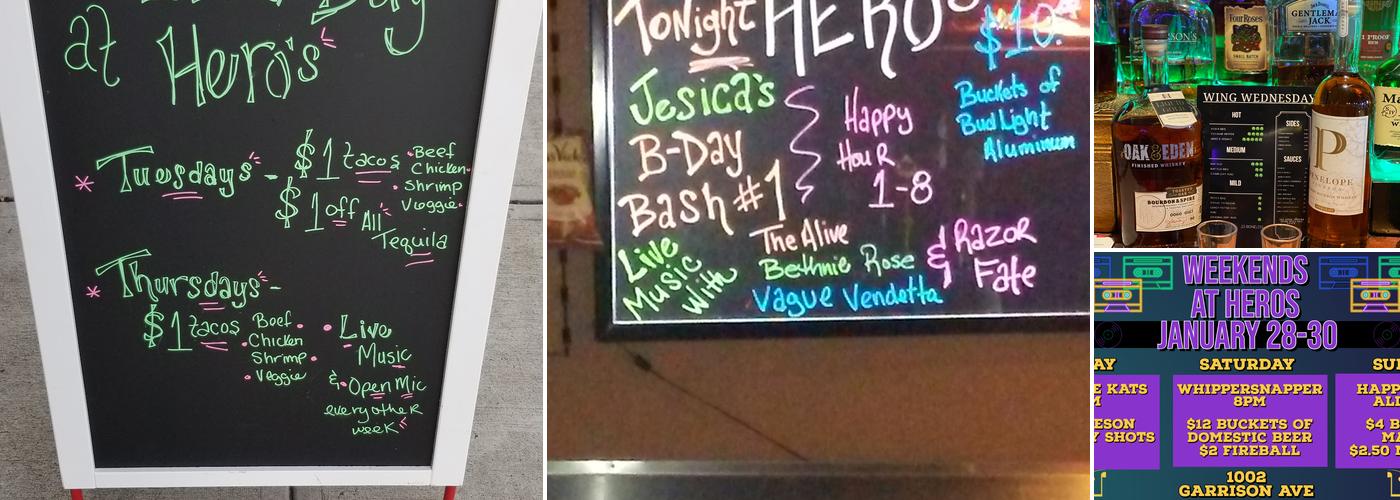 at Hero's
Tuesdays - $1 tacos
Beef
Chicken
Shrimp
Veggie
$1 off All
Tequila
Thursdays -
$1 tacos
Beef
Chicken
Shrimp
Veggie
Live
Music
& Open Mic
every other
week
Tonight HERO'S
$10.
Buckets of
Bud Light
Aluminum
Jesica's
B-Day
Bash #1
Happy
Hour
1-8
Live
Music
With
The Alive
Bethnie Rose
Vague Vendetta
& Razor
Fate
Four Roses
SMALL BATCH
GENTLEMA
JACK
PROOF
WING WEDNESDAY
HOT
SIDES
MEDIUM
SAUCES
MILD
OAK & EDEN
FINISHED WHISKEY
BOURBON & SPIRE
P
ENELOPE
WEEKENDS
AT HEROS
JANUARY 28-30
AY
E KATS
M
ESON
Y SHOTS
SATURDAY
WHIPPERSNAPPER
8PM
$12 BUCKETS OF
DOMESTIC BEER
$2 FIREBALL
SU
HAPP
ALL
$4 B
MA
$2.50
1002
GARRISON AVE